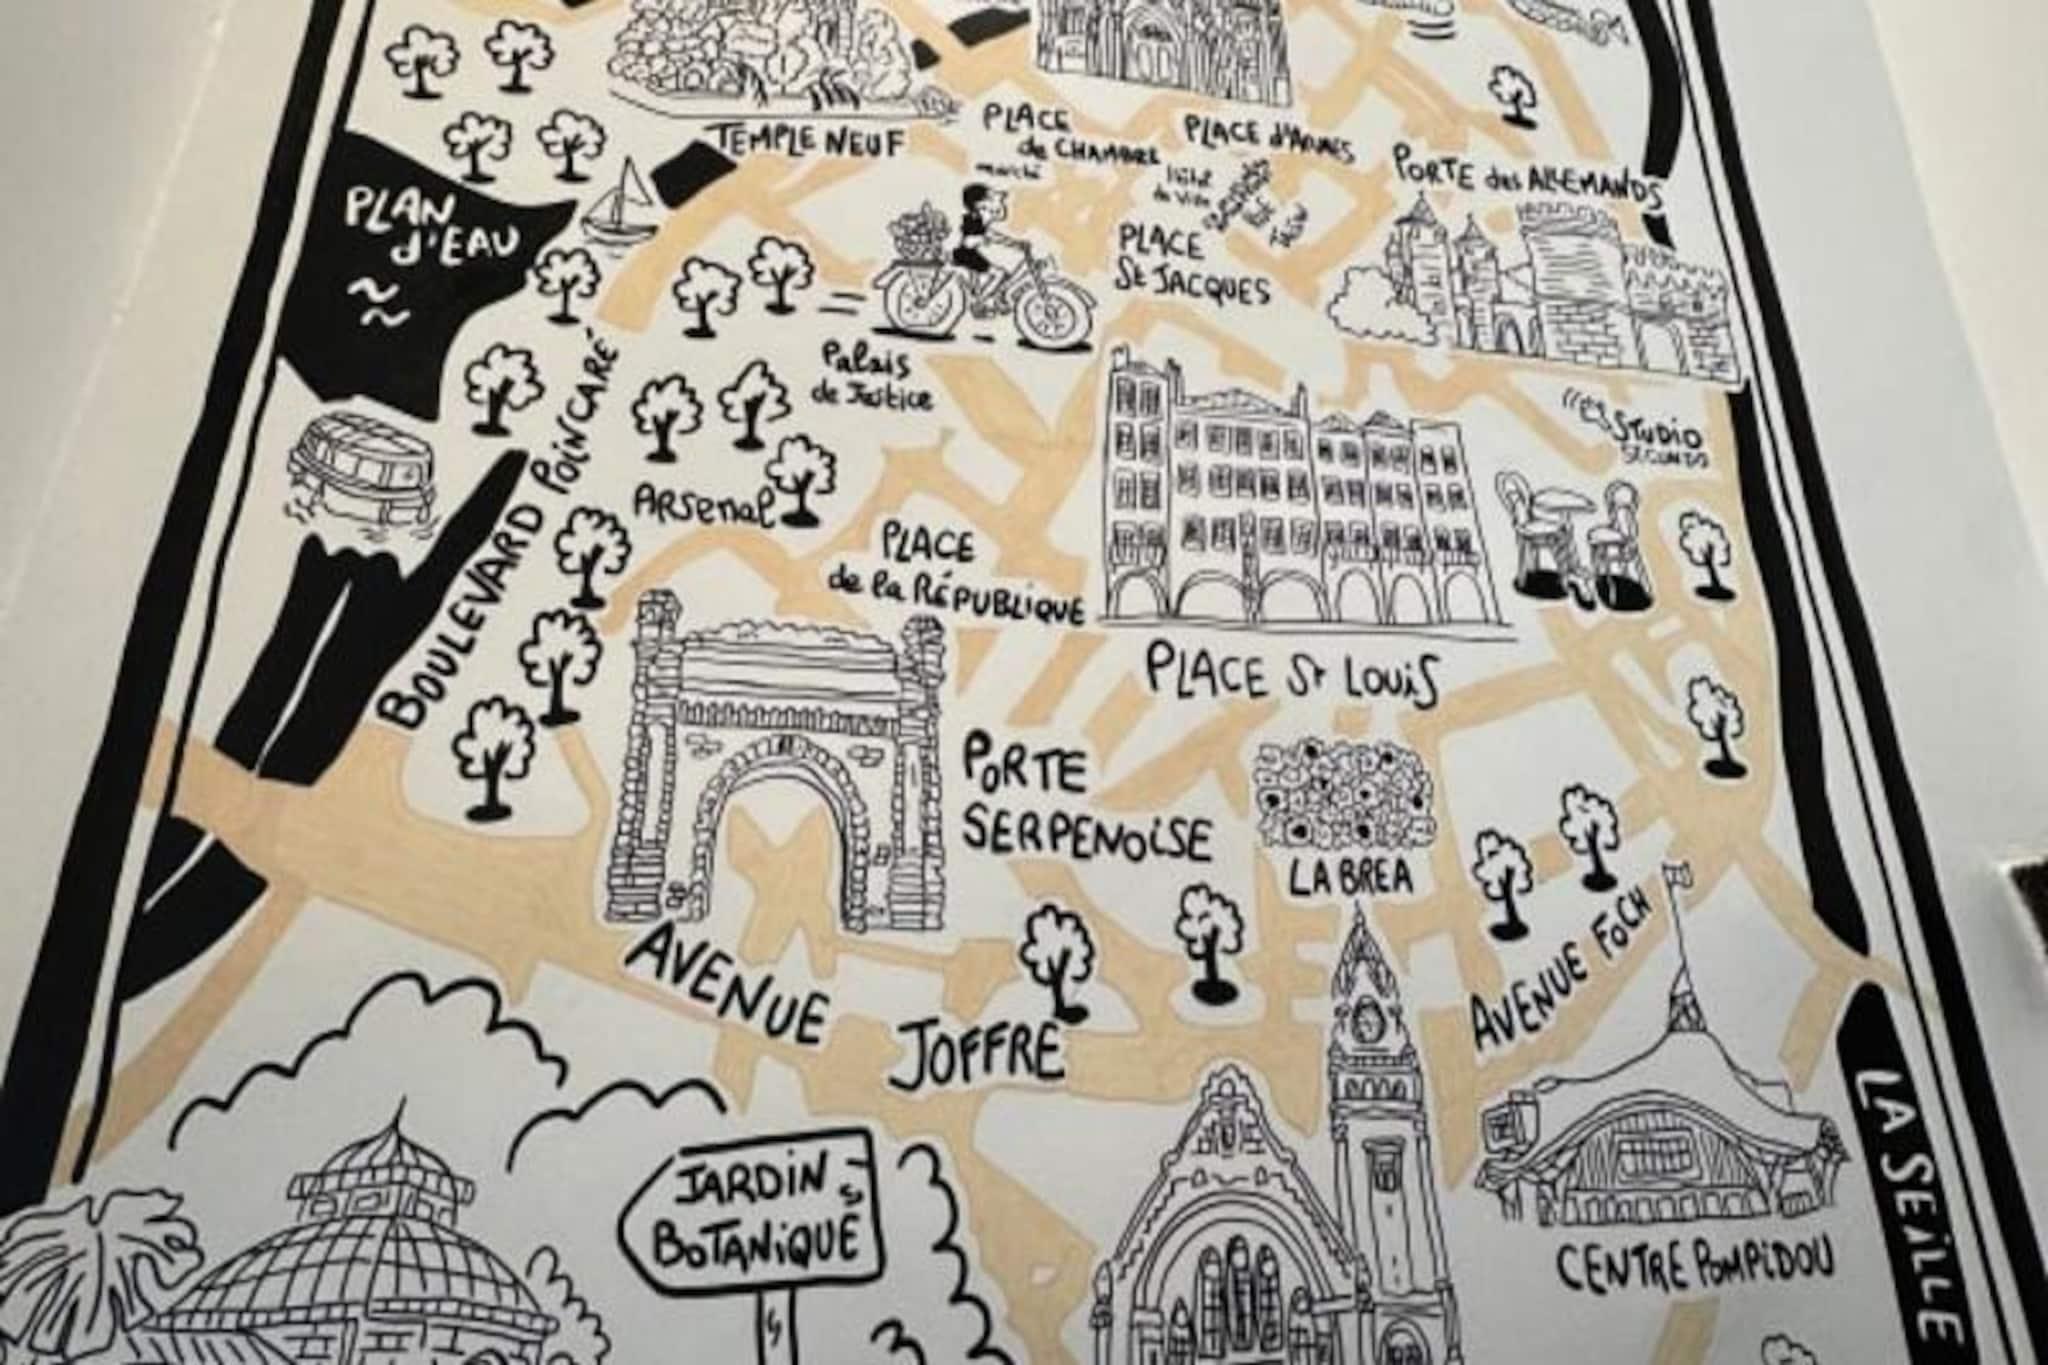 TEMPLE NEUF
PLACE
de CHAMBRE
marché
PLACE d'ARMES
Hôtel
de Ville
PORTE des ALLEMANDS
PLAN
d'EAU
PLACE
St JACQUES
BOULEVARD POINCARÉ
Palais
de Justice
STUDIO
SECUNDO
ARSENAL
PLACE
de la RÉPUBLIQUE
PLACE St LOUIS
PORTE
SERPENOISE
LA BREA
AVENUE
JOFFRE
AVENUE FOCH
JARDIN
BOTANIQUE
CENTRE POMPIDOU
LA SEILLE